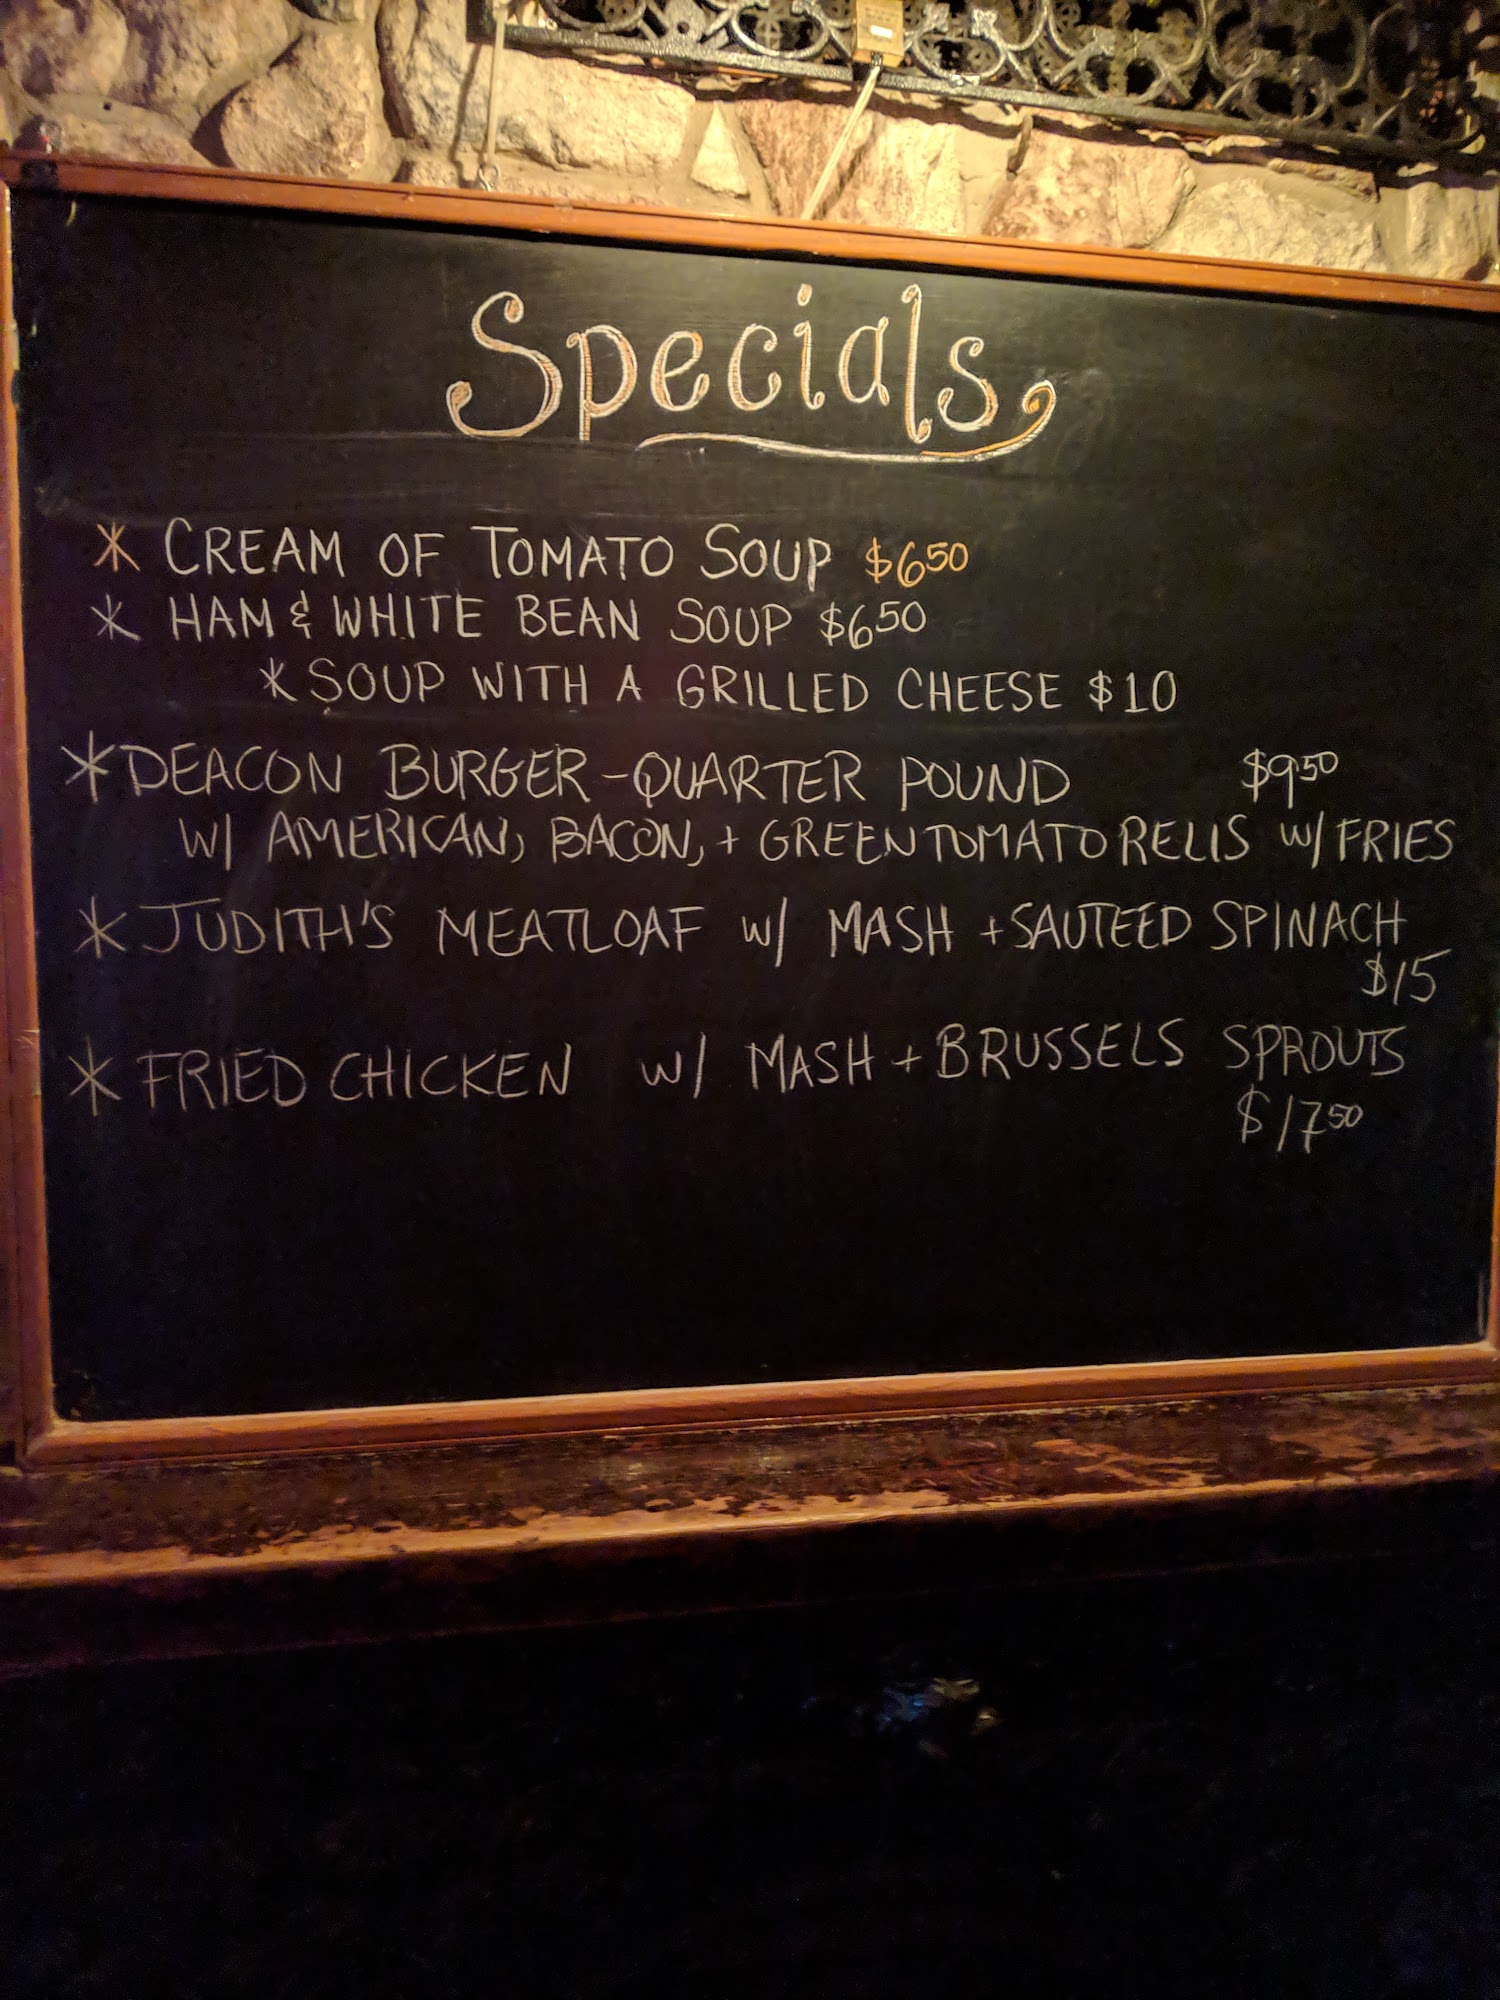 Specials
* CREAM OF TOMATO SOUP $650
* HAM & WHITE BEAN SOUP $650
* SOUP WITH A GRILLED CHEESE $10
* DEACON BURGER - QUARTER POUND $950
W/ AMERICAN, BACON, + GREEN TOMATO RELIS W/ FRIES
* JUDITH'S MEATLOAF W/ MASH + SAUTEED SPINACH
$15
* FRIED CHICKEN W/ MASH + BRUSSELS SPROUTS
$1750